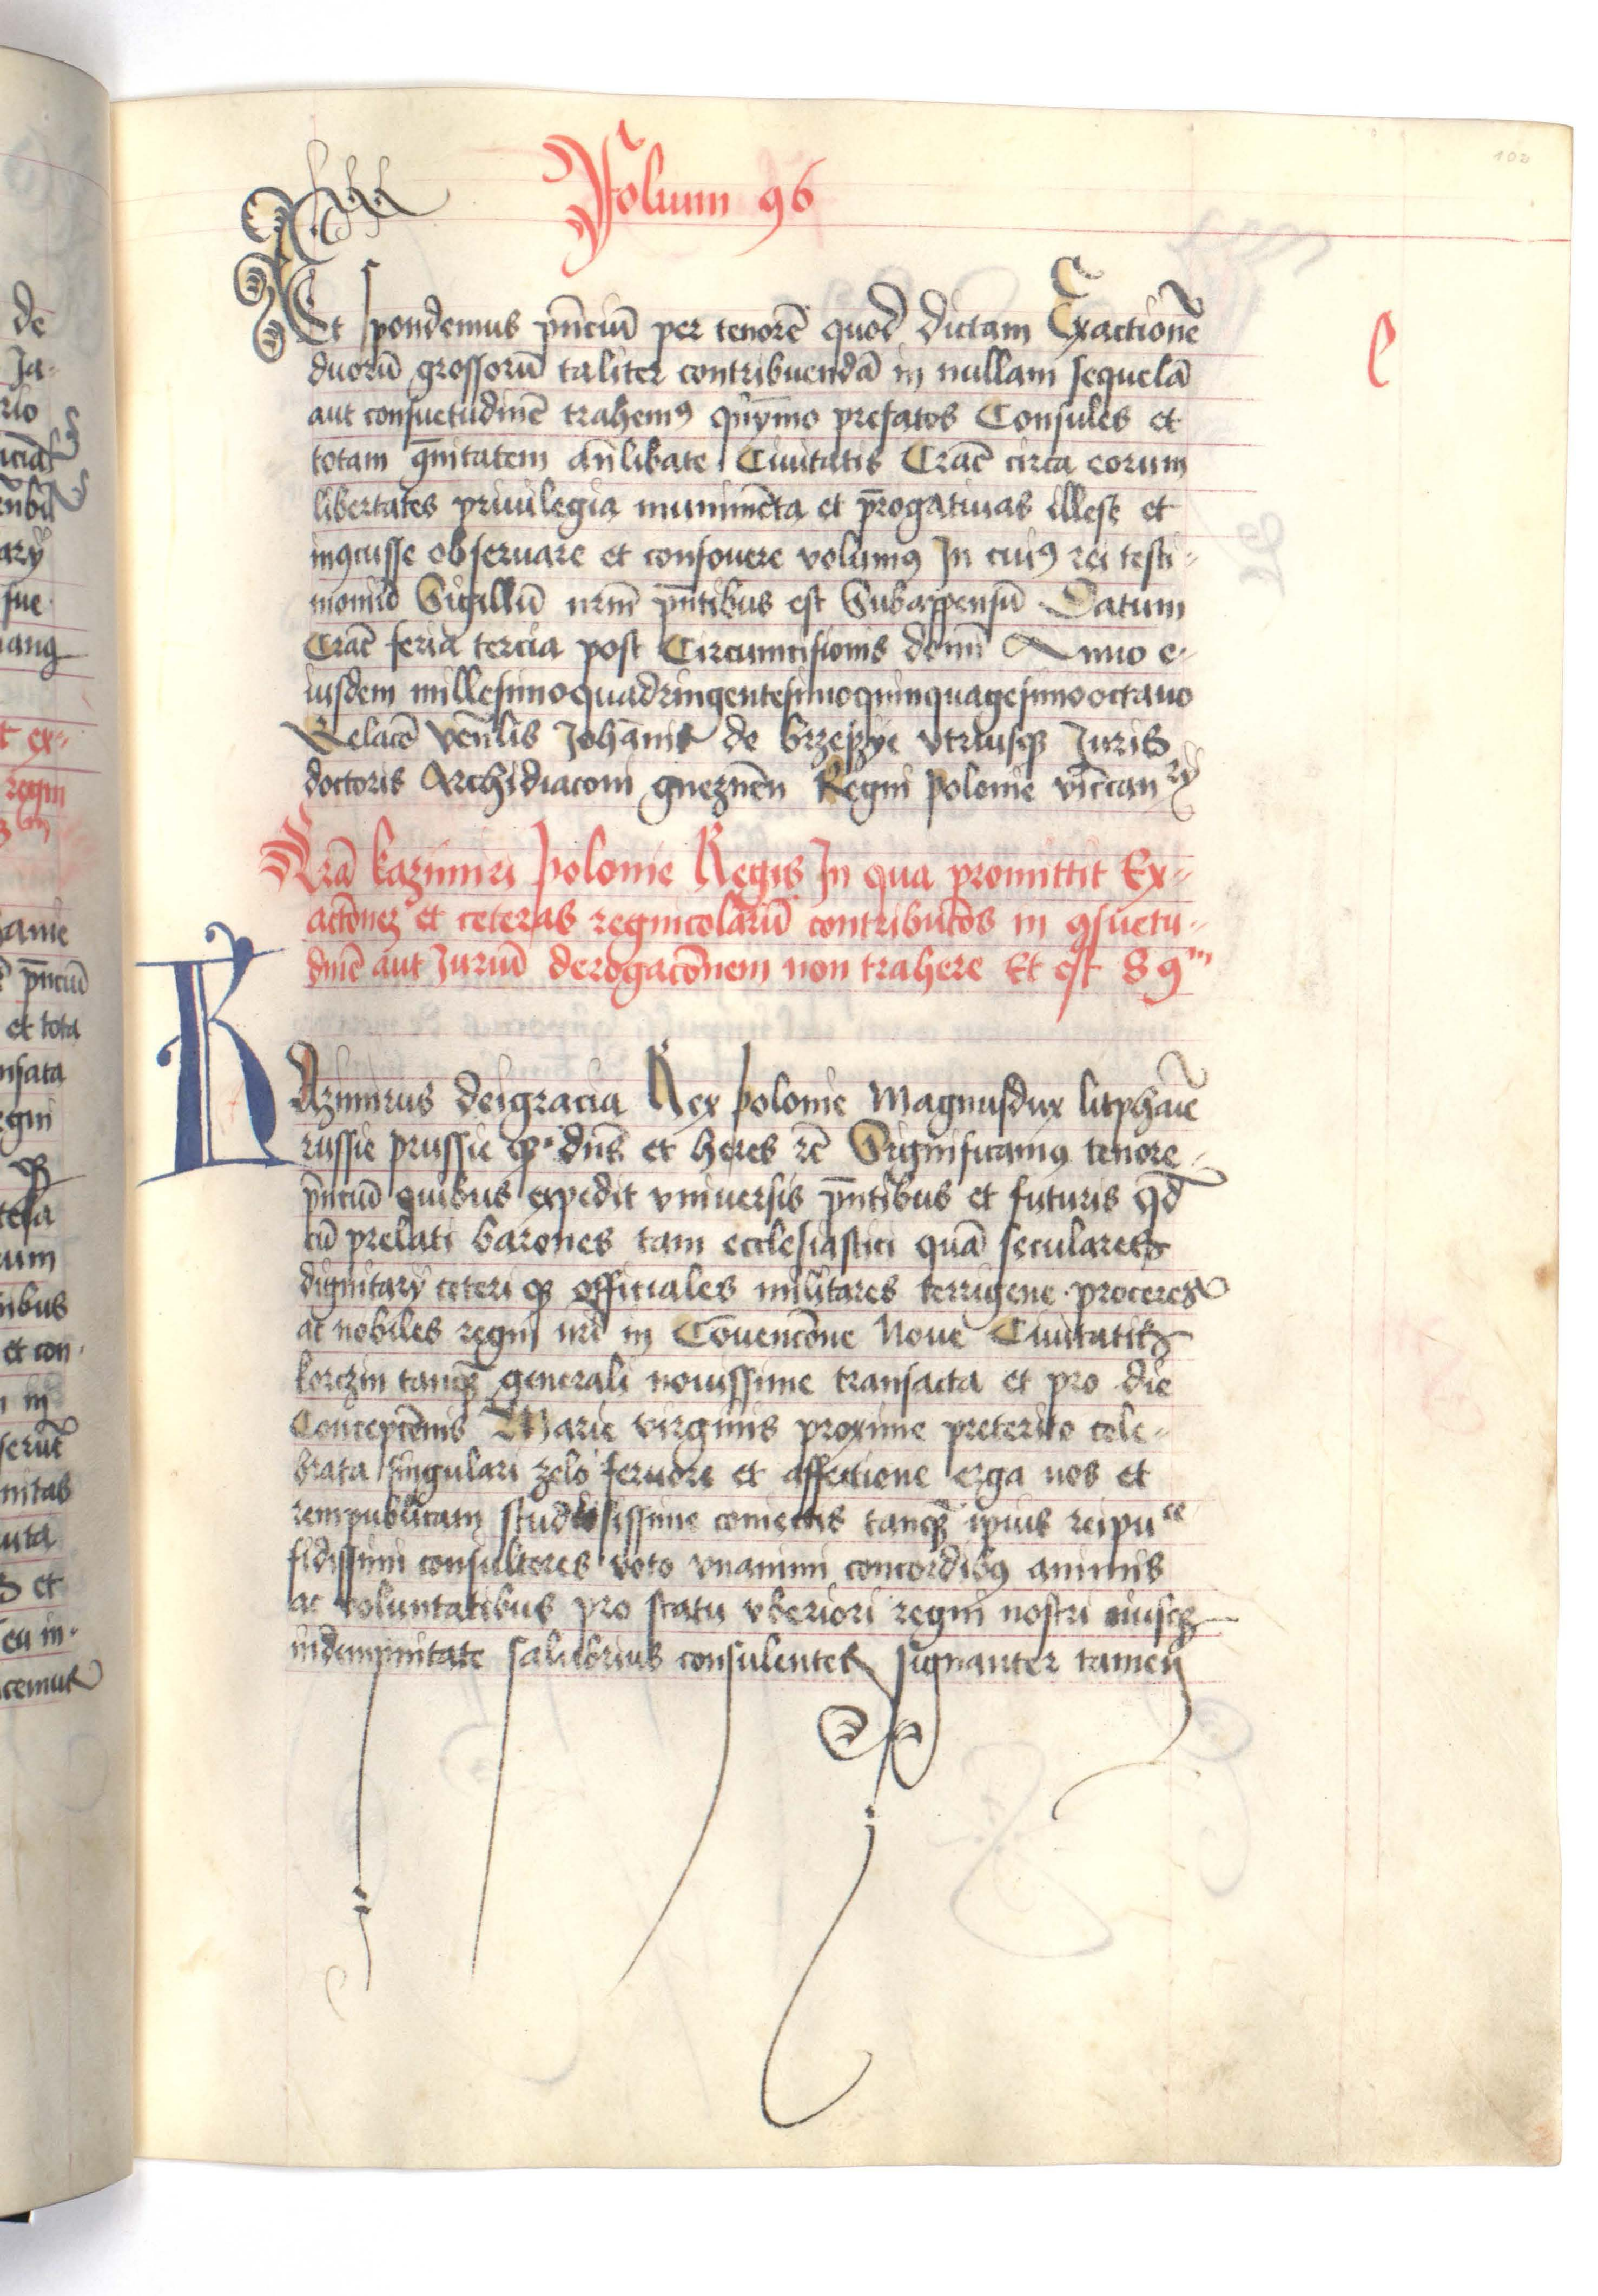 102
Folium 96
Et spondemus pn̄ciū per tenorē quod dictam Exactionē
duorū grossorū taliter contribuendā in nullam sequelā
aut consuetudinē trahemꝰ qnȳmo prefatos Consules et
totam ꝯmūitatem an̄libate Ciuitatis Crac̄ circa eorum
libertates priuilegia munimēta et p̄rogatiuas illese et
inꝯcusse obseruare et confouere volumꝰ In cuiꝰ rei testi-
moniū Sigillū nrm̄ pn̄tibus est Subappensū Datum
Crac̄ feria tercia post Circumcisionis domī Anno e-
iusdem millesimoquadringentesimoquinquagesimooctauo
Relacō ven̄lis Johānis de brzeszye vtriusqꝫ Juris
doctoris Archidiaconi gneznēn Regni polonie vic̄canry
Lrā kazimiri polonie Regis In qua promittit Ex-
actōnes et ceteras regnicolarū contribucōs in ꝯsuetu-
dinē aut Juriū derogacōnem non trahere Et est 89m
KAzimirus deigracia Rex polonie Magnusdux litphaīe
russie prussie qꝫ dn̄s et heres rc̄ Significamꝰ tenore
pn̄ciū quibus expedit vniuersis pn̄tibus et futuris qd̄
cū prelati barones tam ecclesiastici quā seculares
dignitarÿ ceteri qꝫ officiales militares terrigene proceres
ac nobiles regni nrī in Cōuencōne Noue Ciuitatis
korczin tanqꝫ generali nouissime transacta et pro die
Concepcōnis Marie virginis proxime preterito cele-
brata singulari zelo feruore et affectione erga nos et
rempublicam studiosissime coniectis tanqꝫ ipīus reipuce
fidissimi consultores voto vnanimi concordibꝰ animis
ac voluntatibus pro statu vberiori regni nostri eiusqꝫ
indempnitate salubrius consulentes signanter tamen